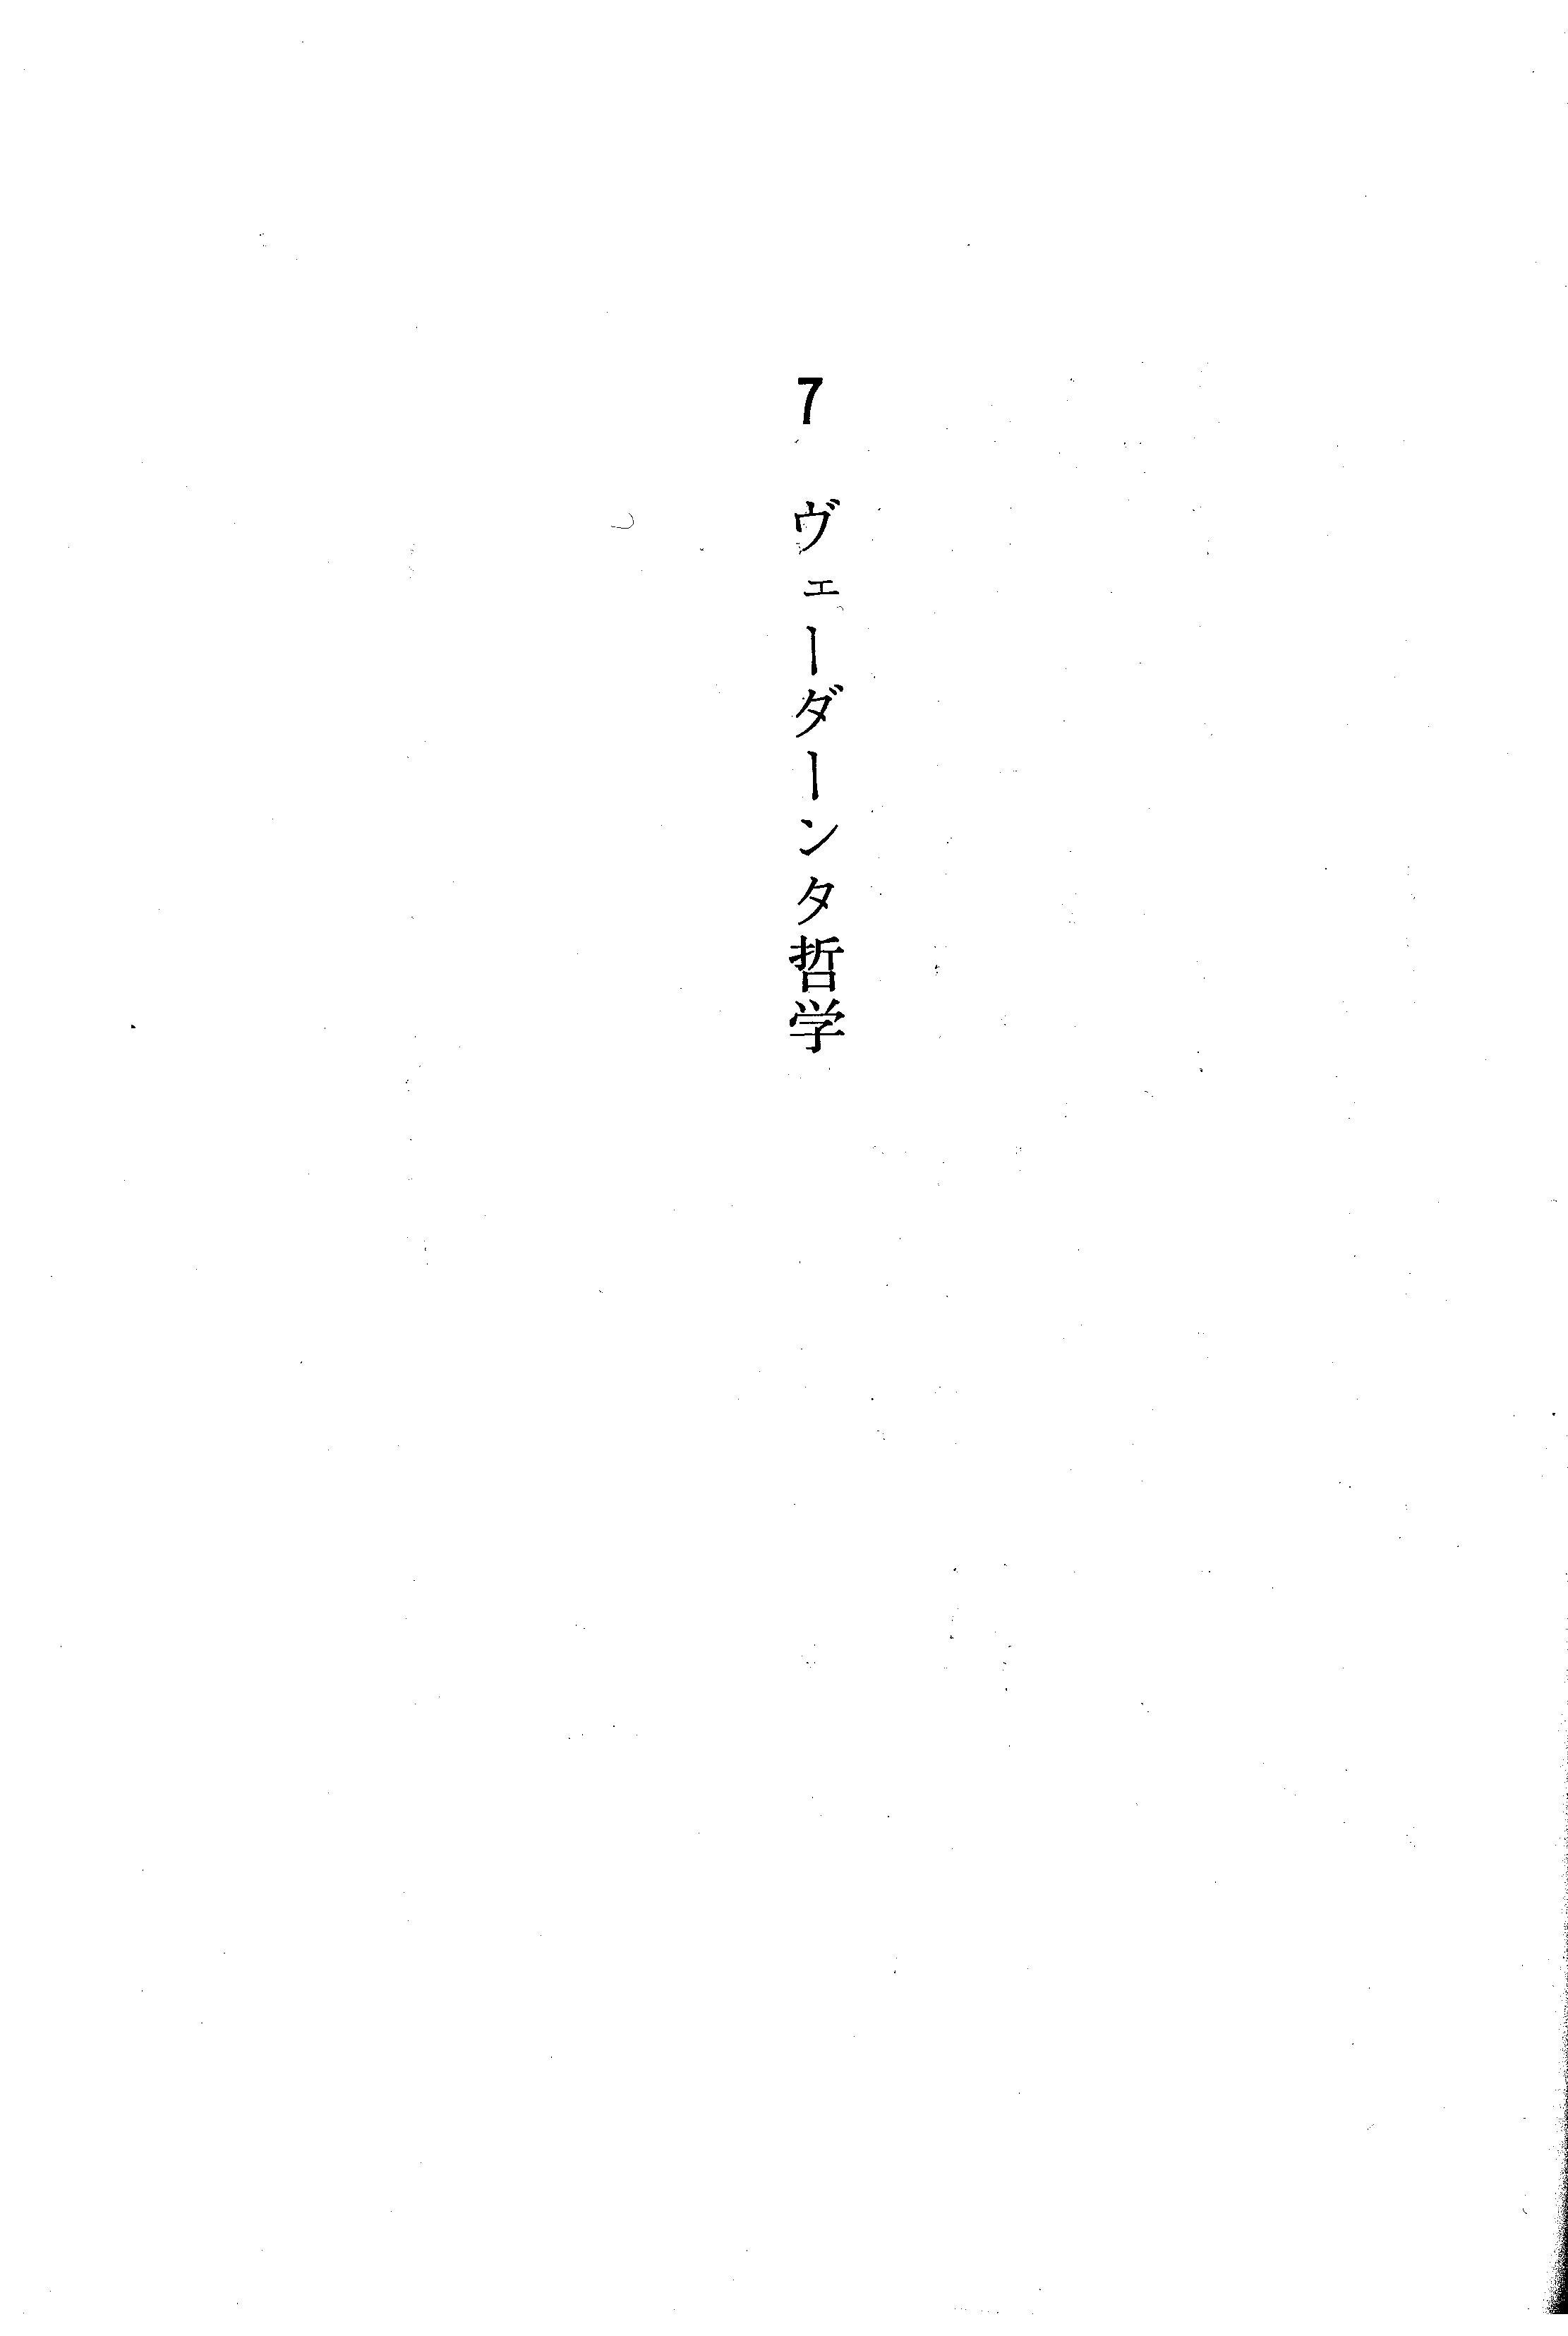 7 ヴェーダーンタ哲学